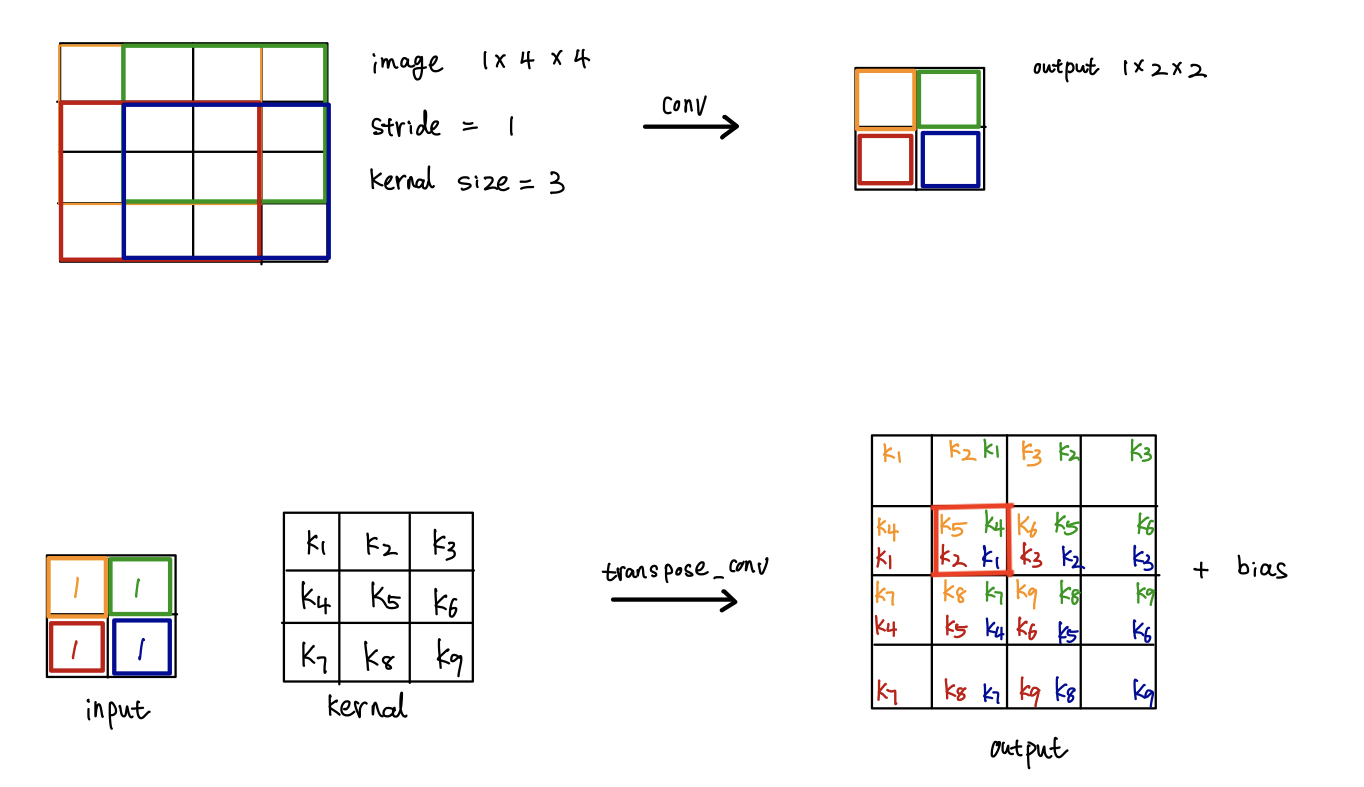 image 1 × 4 × 4
stride = 1
kernal size = 3
conv
output 1 × 2 × 2
1 1
1 1
input
k1 k2 k3
k4 k5 k6
k7 k8 k9
kernal
transpose_conv
k1 k2 k1 k3 k2 k3
k4 k5 k4 k6 k5 k6
k1 k2 k1 k3 k2 k3
k7 k8 k7 k9 k8 k9
k4 k5 k4 k6 k5 k6
k7 k8 k7 k9 k8 k9
output
+ bias